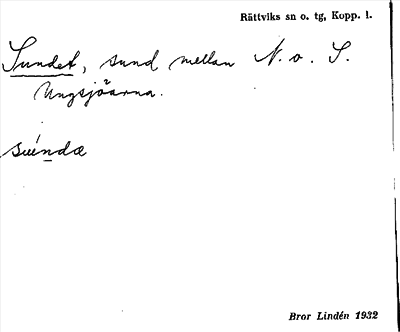 Rättviks sn o. tg, Kopp. l.
Sundet, sund mellan N. o. S.
Ungsjöarna.
Bror Lindén 1932